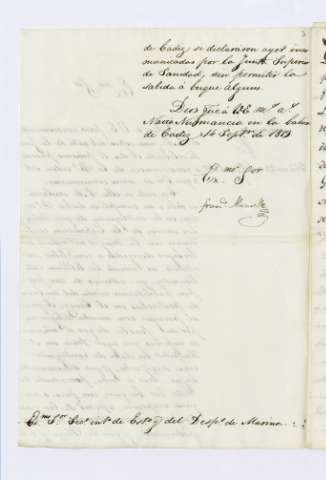 de Cadiz, se declararon ayer inco
municadas por la Junta Superior
de Sanidad, sin permitir la
salida á buque alguno.
Dios gue. á V.E. ms. as.
Navio Numancia en la bahia
de Cadiz 14 Septe. de 1819
Exmo. Sor.
Franco.
Exmo. Sor. Seco. into. de Esto. y del Despo. de Marina.